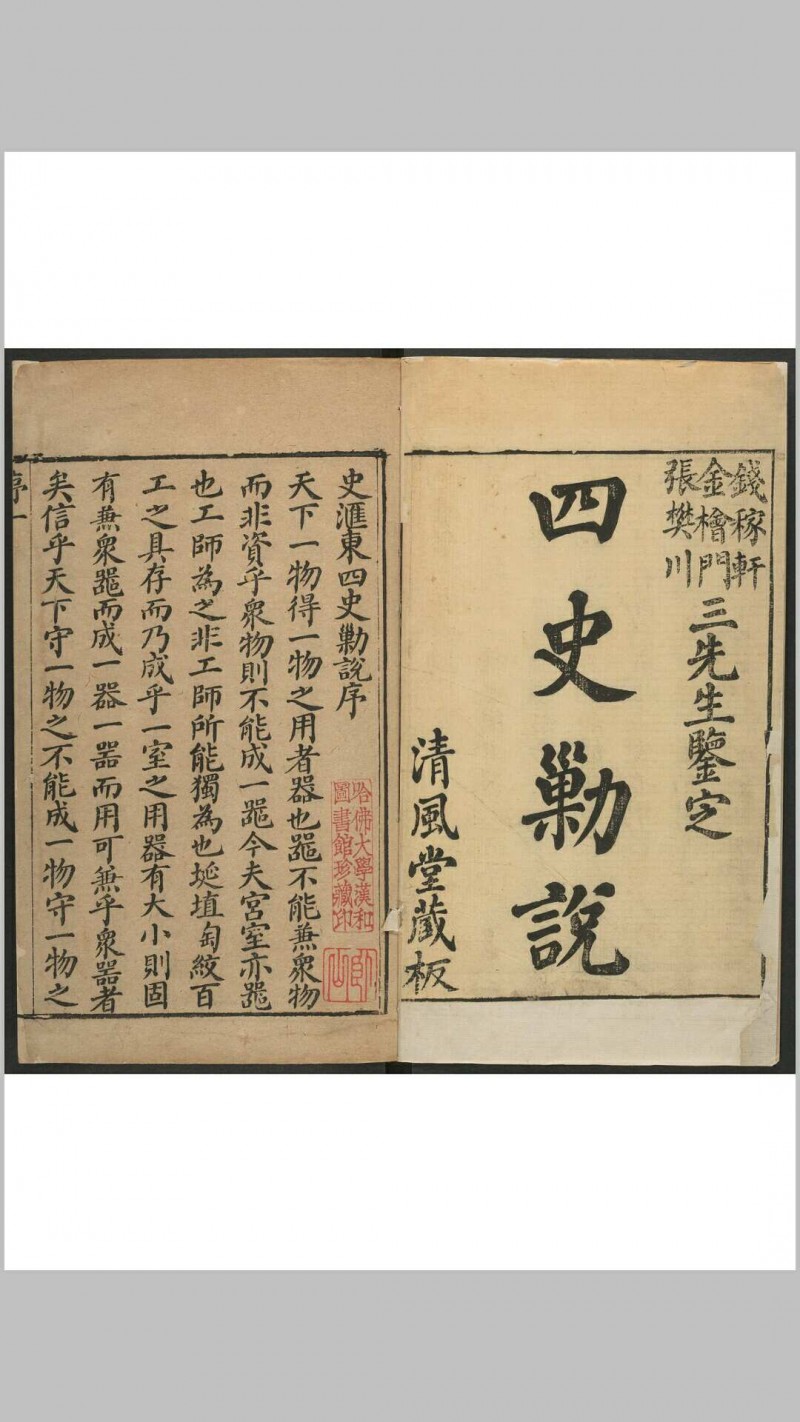 錢稼軒
金檜門
張樊川
三先生鑒定
四史勦說
清風堂藏板
史滙東四史勦說序
天下一物得一物之用者器也噐不能兼衆物
而非資乎衆物則不能成一噐今夫宮室亦噐
也工師為之非工師所能獨為也埏埴匋絞百
工之具存而乃成乎一室之用器有大小則固
有兼衆噐而成一器一噐而用可兼乎衆噐者
矣信乎天下守一物之不能成一物守一物之
序一
哈佛大學漢和
圖書館珍藏印